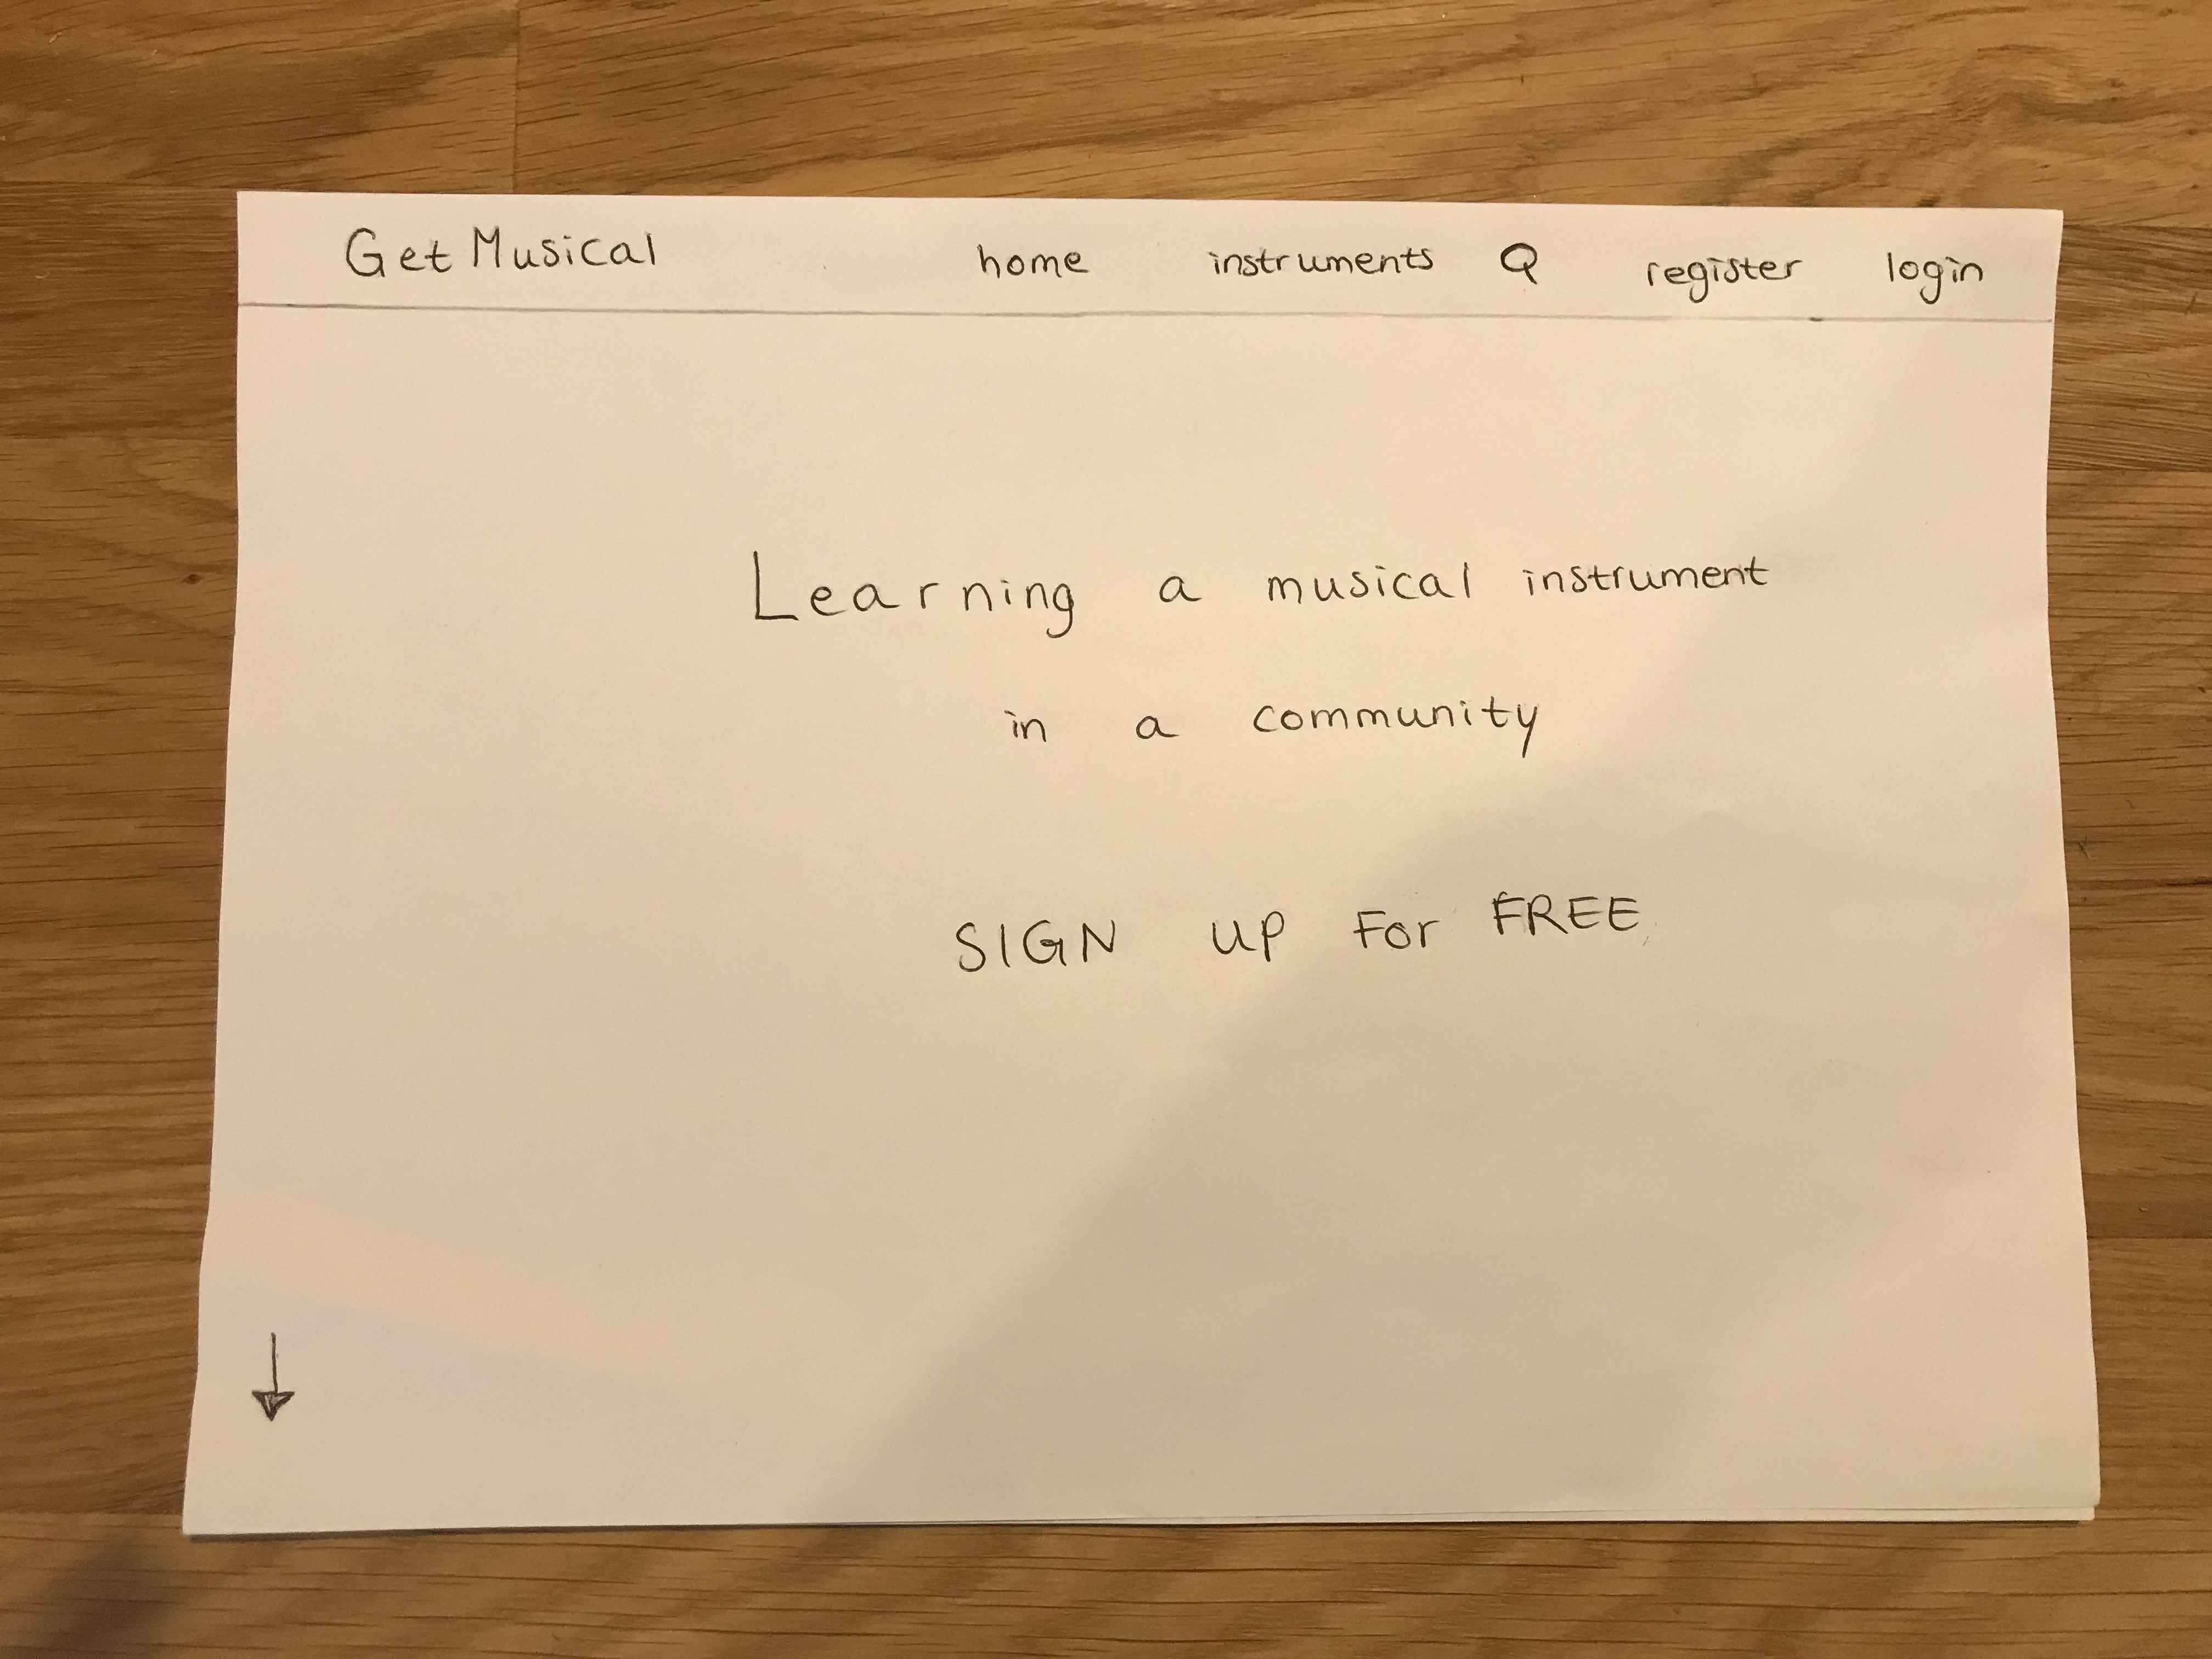 Get Musical home instruments Q register login
Learning a musical instrument
in a community
SIGN UP For FREE